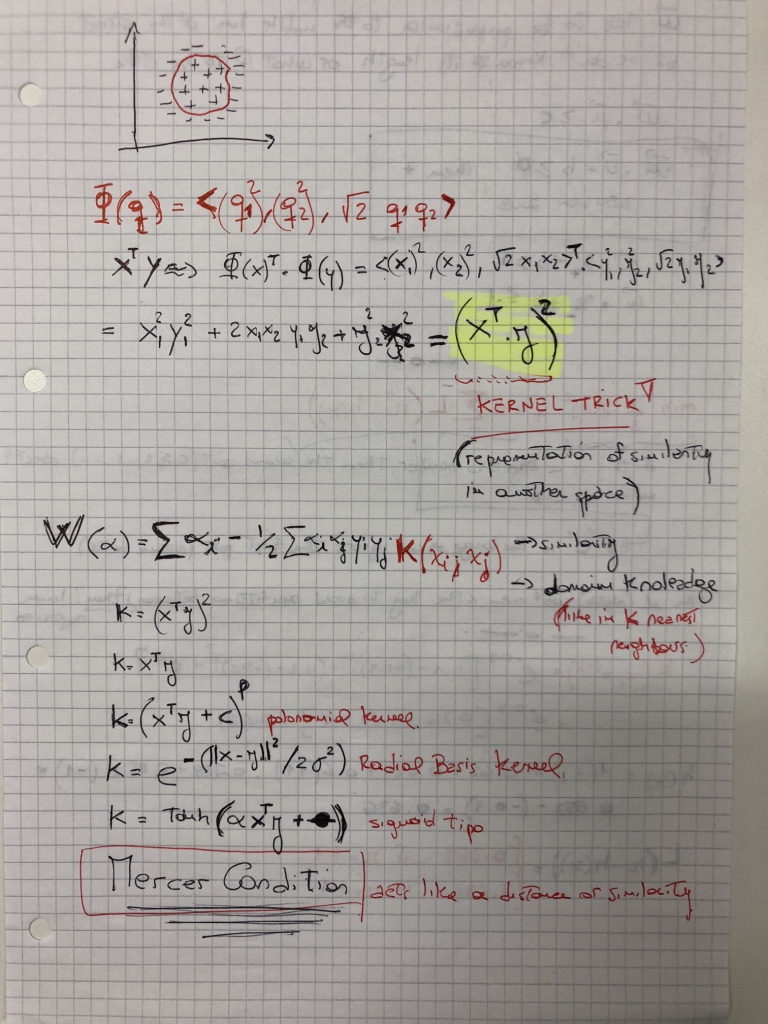 Φ(q) = <(q1)², (q2)², √2 q1 q2>
xᵀy ⇒ Φ(x)ᵀ · Φ(y) = <(x₁)², (x₂)², √2 x₁x₂>ᵀ · <y₁², y₂², √2 y₁y₂>
= x₁²y₁² + 2x₁x₂ y₁y₂ + y₂² x₂² = (xᵀ·y)²
KERNEL TRICK
(representation of similarity
in another space)
W(α) = ∑ αᵢ - 1/2 ∑ αᵢ αⱼ yᵢ yⱼ K(xᵢ, xⱼ) → similarity
→ domain Knoleadge
(like in K nearest
neighbours)
K = (xᵀy)²
K = xᵀy
K = (xᵀy + c)ᵖ polonomial kernel.
K = e^-(‖x-y‖²/2σ²) Radial Basis Kernel.
K = Tanh(αxᵀy + ) sigmoid tipo
Mercer Condition acts like a distance or similarity